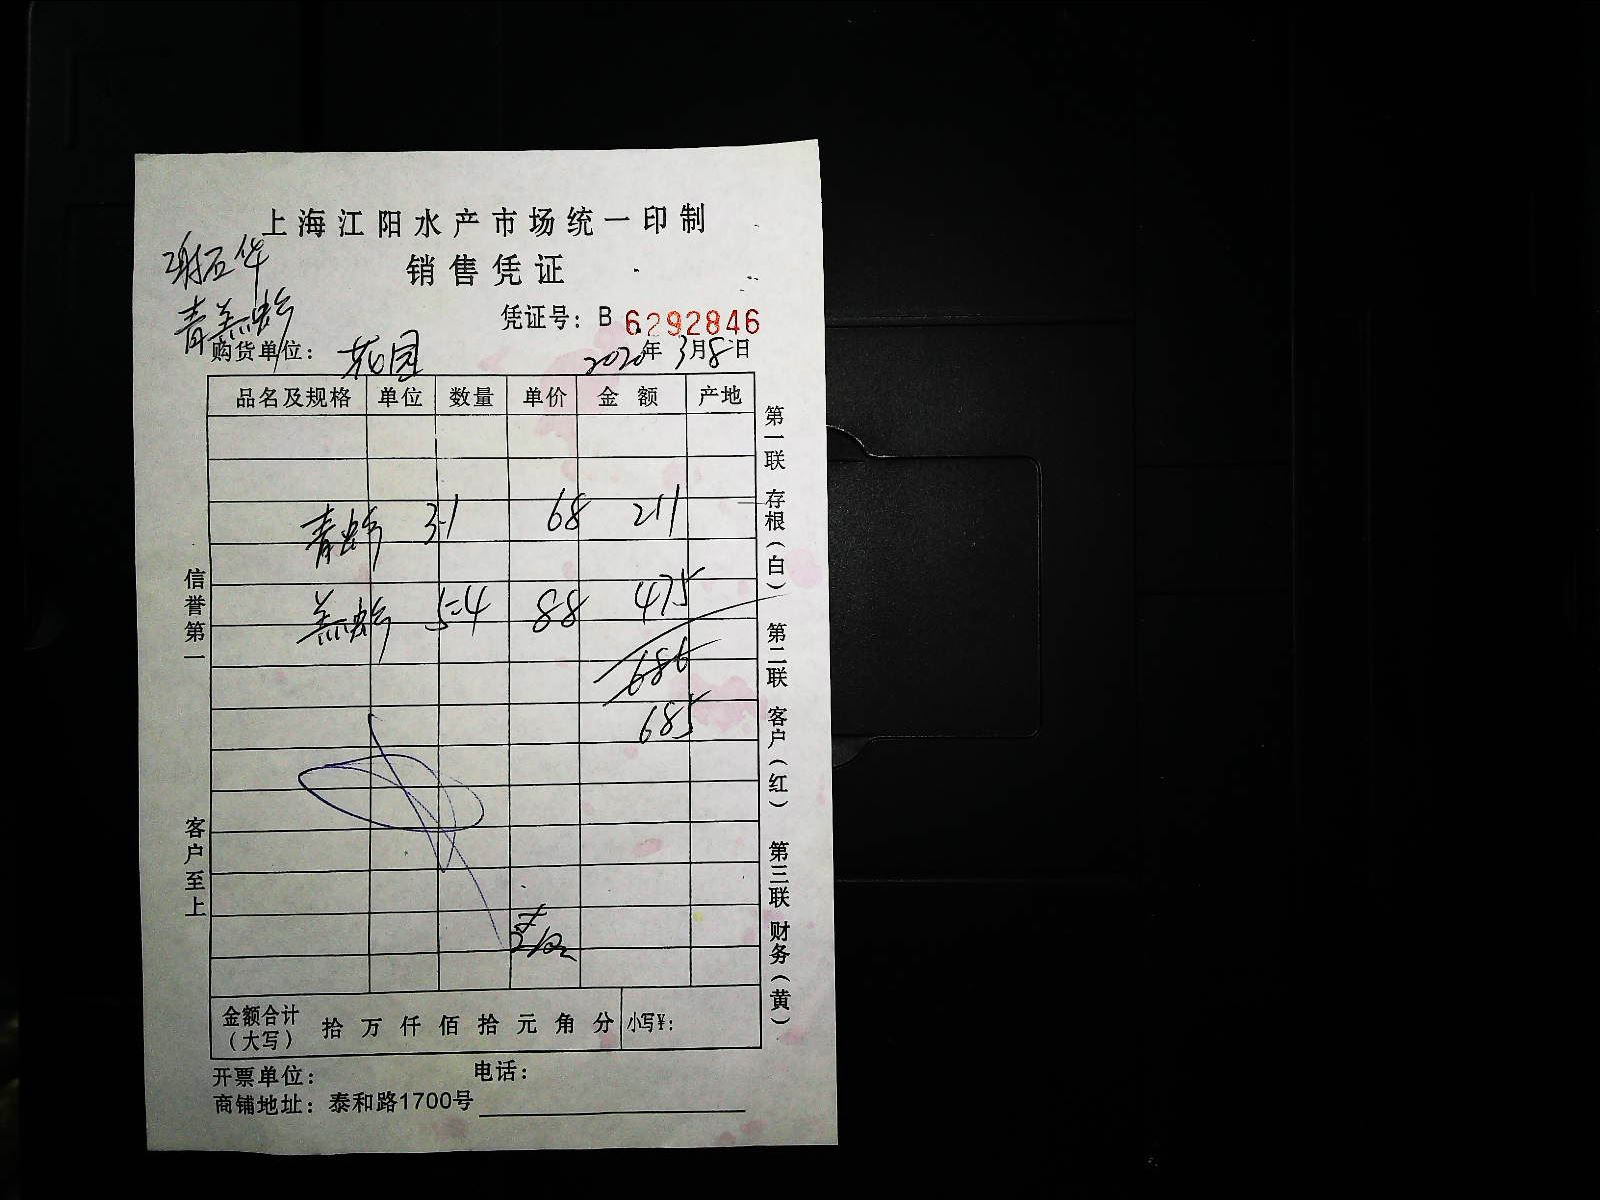 上海江阳水产市场统一印制
销售凭证
凭证号：B 6292846
购货单位：花园
2020年3月8日
品名及规格 单位 数量 单价 金额 产地
青 3.1 68 211
5.4 88 475
686
685
金额合计（大写） 拾 万 仟 佰 拾 元 角 分 小写¥：
开票单位： 电话：
商铺地址：泰和路1700号
信誉第一
客户至上
第一联 存根（白） 第二联 客户（红） 第三联 财务（黄）